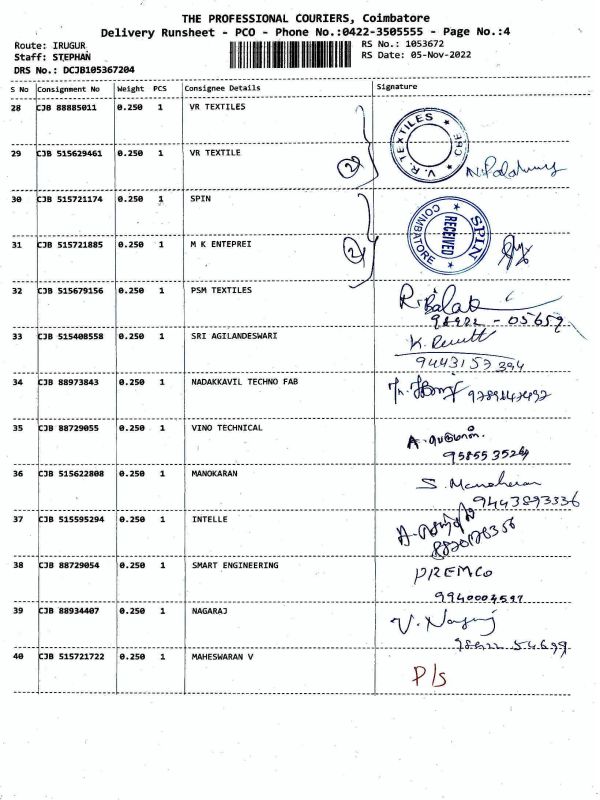 THE PROFESSIONAL COURIERS, Coimbatore
Delivery Runsheet - PCO - Phone No.:0422-3505555 - Page No.:4
Route: IRUGUR RS No.: 1053672
Staff: STEPHAN RS Date: 05-Nov-2022
DRS No.: DCJB105367204
S No Consignment No Weight PCS Consignee Details Signature
28 CJB 88885011 0.250 1 VR TEXTILES
V.R. TEXTILES ★ CBE ★
29 CJB 515629461 0.250 1 VR TEXTILE
30 CJB 515721174 0.250 1 SPIN
★ SPIN ★ COIMBATORE RECEIVED
31 CJB 515721885 0.250 1 M K ENTEPREI
32 CJB 515679156 0.250 1 PSM TEXTILES
R. Balak
98422 - 05659
33 CJB 515408558 0.250 1 SRI AGILANDESWARI
9443157394
34 CJB 88973843 0.250 1 NADAKKAVIL TECHNO FAB
9789147492
35 CJB 88729055 0.250 1 VINO TECHNICAL
36 CJB 515622808 0.250 1 MANOKARAN
S. Manoharan
9443893336
37 CJB 515595294 0.250 1 INTELLE
38 CJB 88729054 0.250 1 SMART ENGINEERING
PREMCO
39 CJB 88934407 0.250 1 NAGARAJ
V. Nagaraj
98422 54699
40 CJB 515721722 0.250 1 MAHESWARAN V
P/s